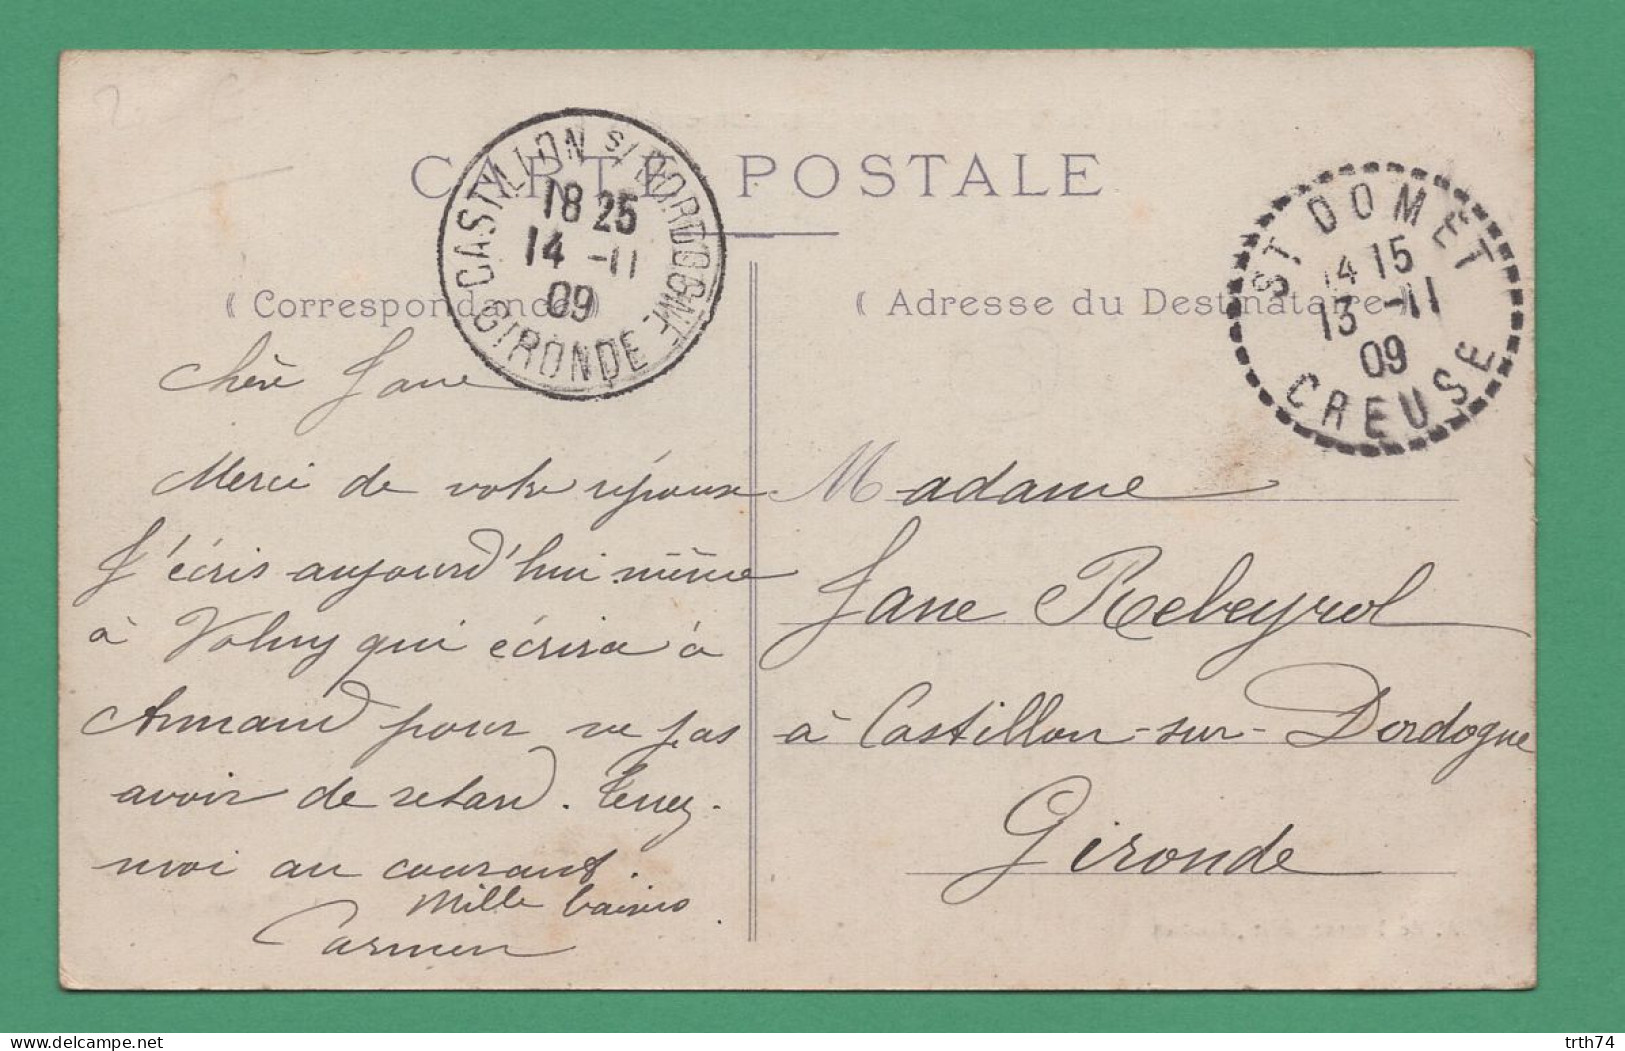 CARTE POSTALE
CASTILLON S/ DORDOGNE
18 25
14 -11
09
GIRONDE
ST DOMET
14 15
13 -11
09
CREUSE
( Correspondance )
( Adresse du Destinataire )
Chère Jane
Merci de votre réponse
J'écris aujourd'hui même
à Volny qui écrira à
Armand pour ne pas
avoir de retard. Tenez-
moi au courant.
Mille baisers.
Carmen
Madame
Jane Rebeyrol
à Castillon-sur-Dordogne
Gironde
trth74